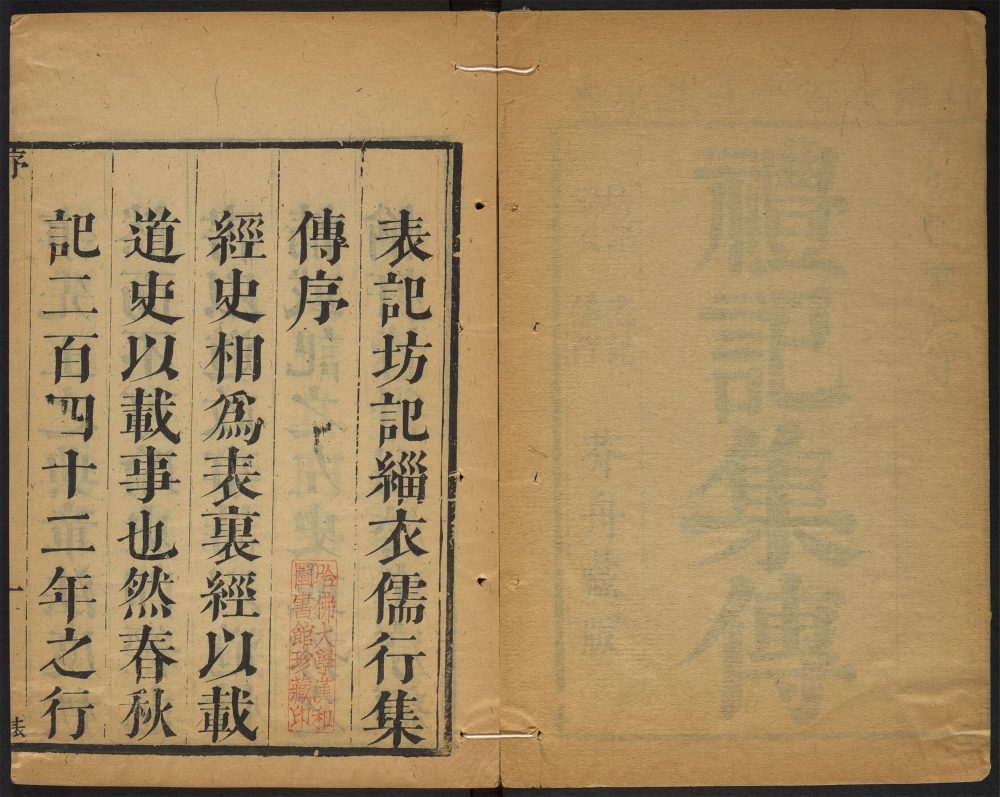 表記坊記緇衣儒行集
傳序
經史相爲表裏經以載
道史以載事也然春秋
記二百四十二年之行
序
一
表
哈佛大學漢和
圖書館珍藏印
禮記集傳